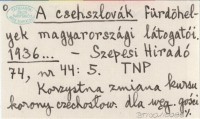 A csehszlovák fürdőhel-
yek magyarországi látogatói.
1936... - Szepesi Hiradó
74, nr 44: 5. TNP
Korzystna zmiana kursu
korony czechosłow. dla węg. gości